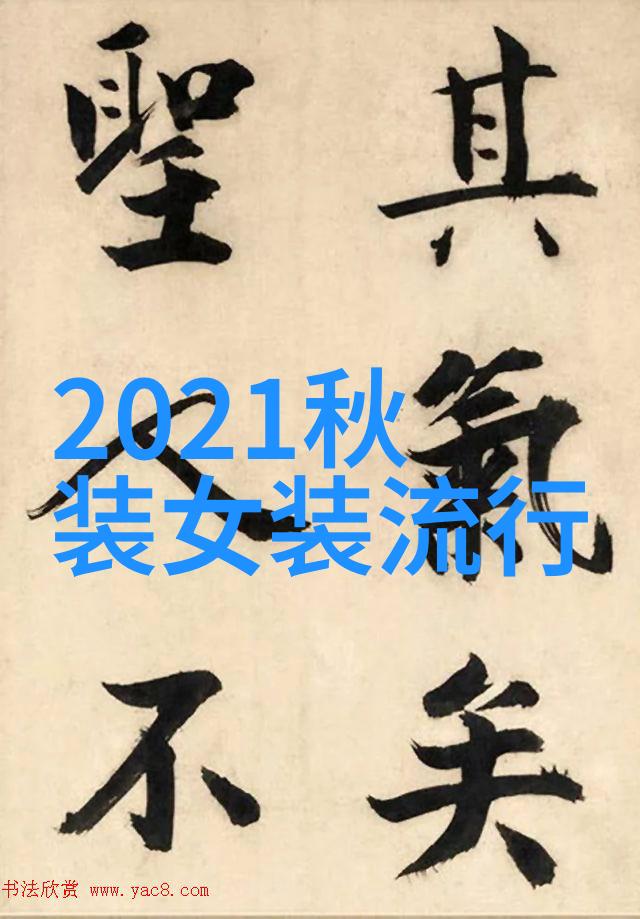 其氣矣
聖人不
2021秋
装女装流行
书法欣赏 www.yac8.com